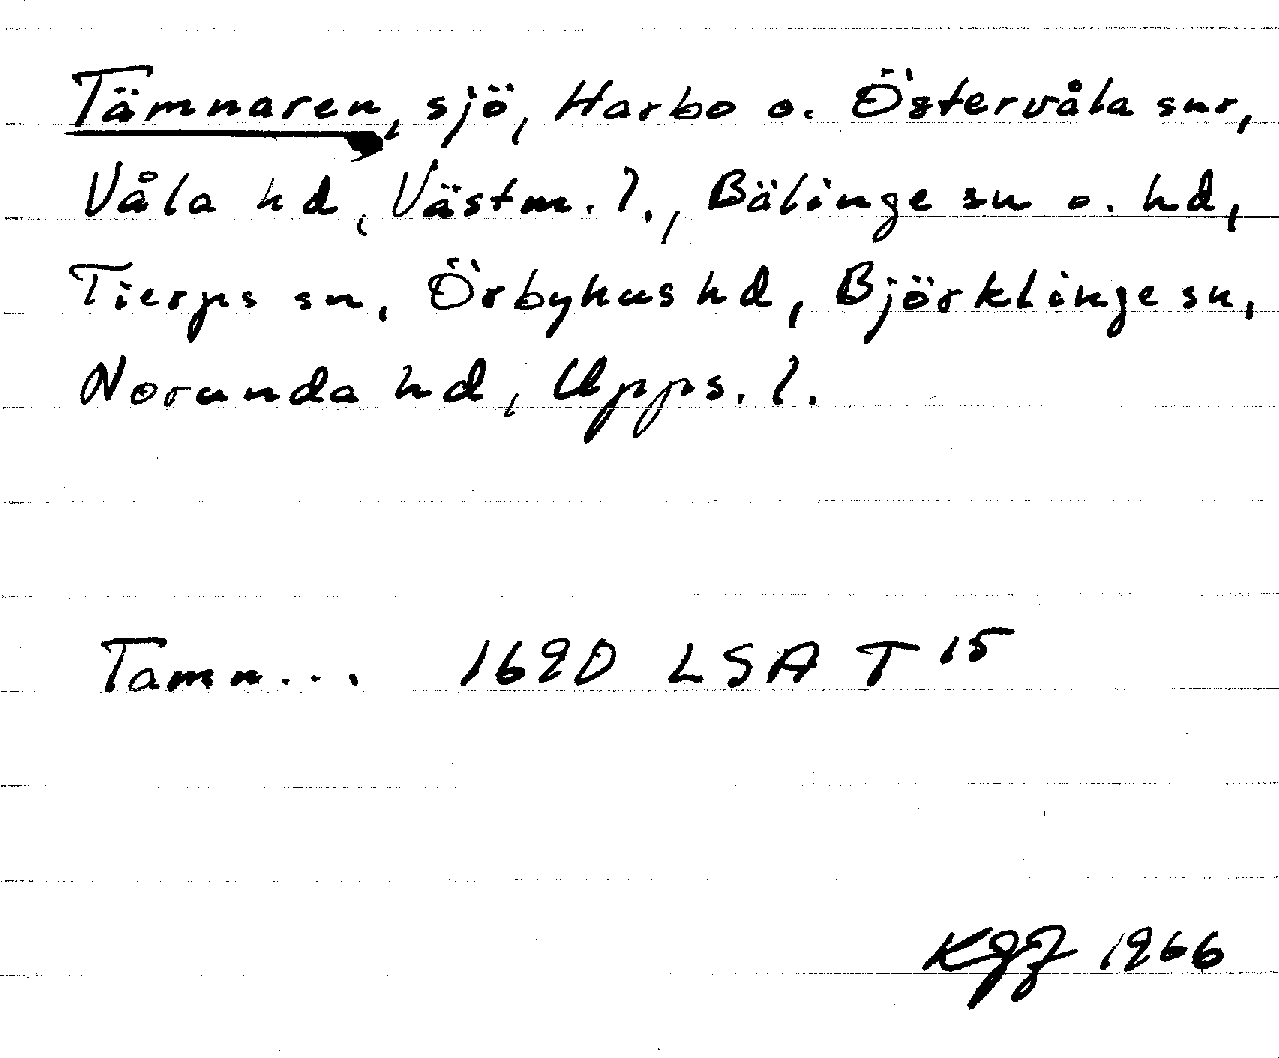 Tämnaren, sjö, Harbo o. Östervåla snr,
Våla hd, Västm. l., Bälinge sn o. hd,
Tierps sn, Örbyhus hd, Björklinge sn,
Norunda hd, Upps. l.
Tamn... 1690 LSA T 15
1966